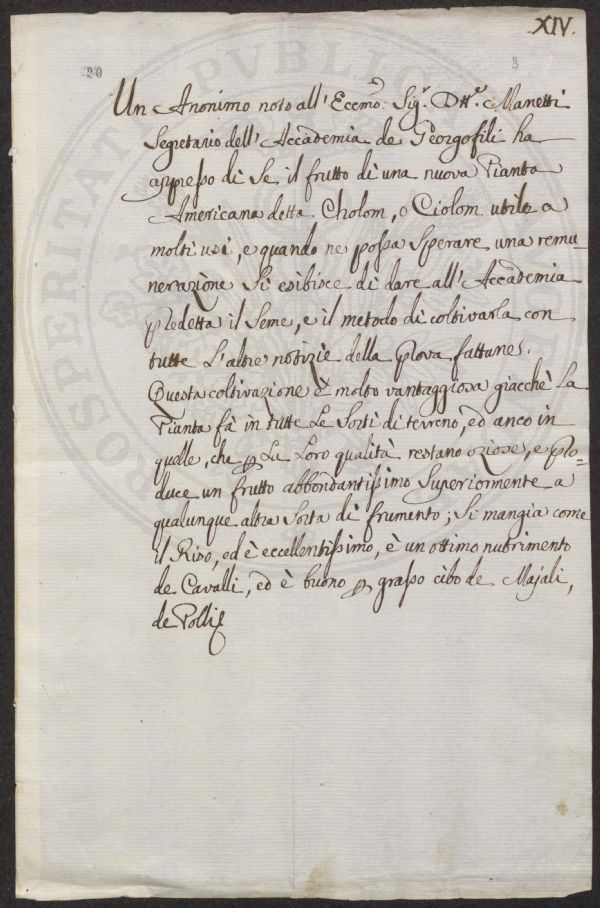 XIV.
30
3
PROSPERITATI PVBLICAE
Un Anonimo noto all' Eccmo: Sig.r Dtt.r Manetti
Segretario dell' Accademia de Georgofili ha
appresso di Se il frutto di una nuova Pianta
Americana detta Cholom, o Ciolom utile a
molti usi, e quando ne possa Sperare una remu-
nerazione Si esibisce di dare all' Accademia
Predetta il Seme, e il metodo di coltivarla con
tutte L'altre notizie della prova fattane.
Questa coltivazione è molto vantaggiosa giacchè La
Pianta fà in tutte Le Sorti di terreno, ed anco in
quelle, che p La Loro qualità restano oziose, e Pro=
duce un frutto abbondantissimo Superiormente a
qualunque altra Sorta di frumento; Si mangia come
il Riso, ed è eccellentissimo, è un ottimo nutrimento
de Cavalli, ed è buono p grasso cibo de Majali,
de Polli